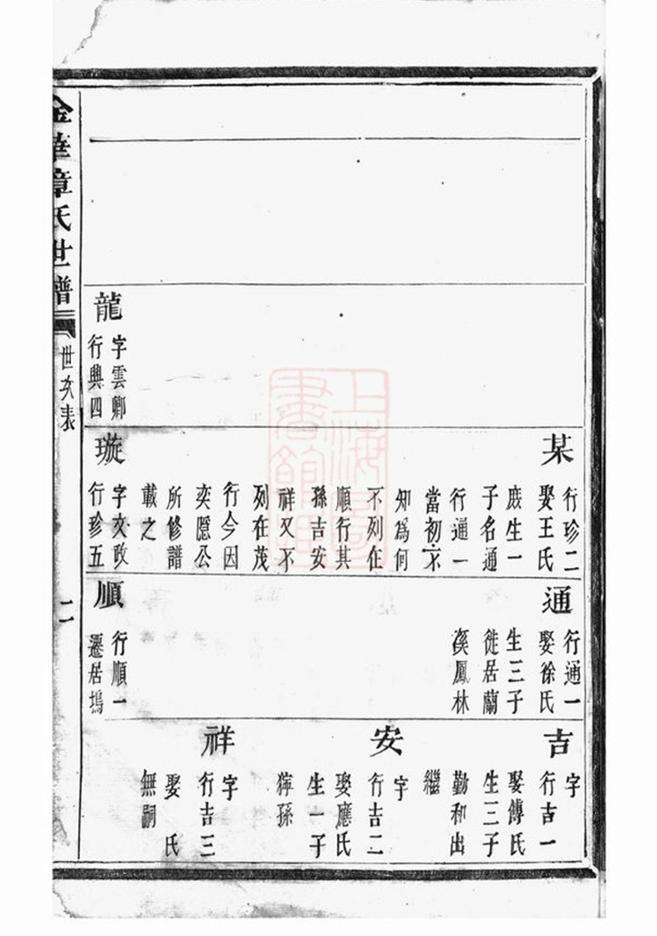 龍
字雲卿
行興四
某
行珍二
娶王氏
庶生一
子名通
行通一
當初不
知爲何
不列在
順行其
孫吉安
祥又不
列在茂
行今因
奕隱公
所修譜
載之
璇
字文政
行珍五
通
行通一
娶徐氏
生三子
徙居蘭
溪鳳林
順
行順一
遷居塢
吉
字
行吉一
娶傅氏
生三子
勤和出
繼
安
字
行吉二
娶應氏
生一子
孫
祥
字
行吉三
娶 氏
無嗣
金華章氏世譜
世次表
二